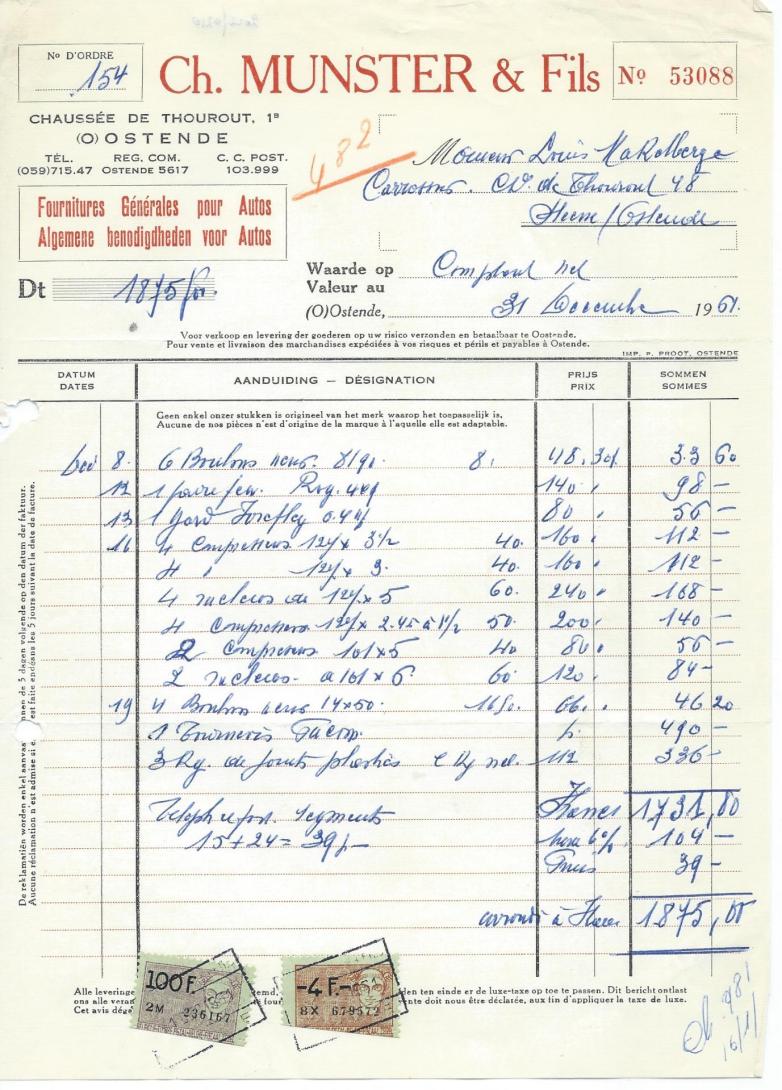 No D'ORDRE
154
Ch. MUNSTER & Fils
No 53088
CHAUSSÉE DE THOUROUT, 1B
(O) OSTENDE
TÉL. REG. COM. C. C. POST.
(059)715.47 OSTENDE 5617 103.999
482
Monsieur Louis Makelberge
Carrosserie. Ch. de Thourout 48
/Ostende
Fournitures Générales pour Autos
Algemene benodigdheden voor Autos
Dt 1875 fr.
Waarde op
Valeur au
Comptant net
(O)Ostende, 31 Decembre 1961.
Voor verkoop en levering der goederen op uw risico verzonden en betaalbaar te Oostende.
Pour vente et livraison des marchandises expédiées à vos risques et périls et payables à Ostende.
IMP. P. PROOT, OSTENDE
DATUM
DATES
AANDUIDING — DÉSIGNATION
PRIJS
PRIX
SOMMEN
SOMMES
Geen enkel onzer stukken is origineel van het merk waarop het toepasselijk is.
Aucune de nos pièces n'est d'origine de la marque à l'aquelle elle est adaptable.
Dec 8. 6 Boulons 8. 48. 30% 33 60
12 1 140 " 98 —
13 1 80 " 56 —
16 4 Compresseurs 127 x 3 1/2 40. 160 " 112 —
4 " 127 x 3. 40. 160 " 112 —
4 racleurs 127 x 5 60. 240 " 168 —
4 Compresseurs 50. 200 " 140 —
2 Compresseurs 101 x 5 40 80 " 56 —
2 racleurs 101 x 6 60 120 " 84 —
19 4 Boulons 14x50. 1650. 66. " 46 20
1 Tournevis Facom. 490 —
3 Kg. de joints plastics net. 112 336 —
Francs 1731,80
Teleph export. segments
taxe 6% 104 —
15 + 24 = 39f —
Frais 39 —
arrondi à Francs 1875,00
De reklamatiën worden enkel aanvaard binnen de 5 dagen volgende op den datum der faktuur.
Aucune réclamation n'est admise si est faite endéans les 5 jours suivant la date de facture.
100 F.
2M 236167
-4 F.-
8X 679572
Alle leveringe
den ten einde er de luxe-taxe op toe te passen. Dit bericht ontlast
ons alle veran
nte doit nous être déclarée, aux fin d'appliquer la taxe de luxe.
Cet avis dége
Ch. 981
16/1/